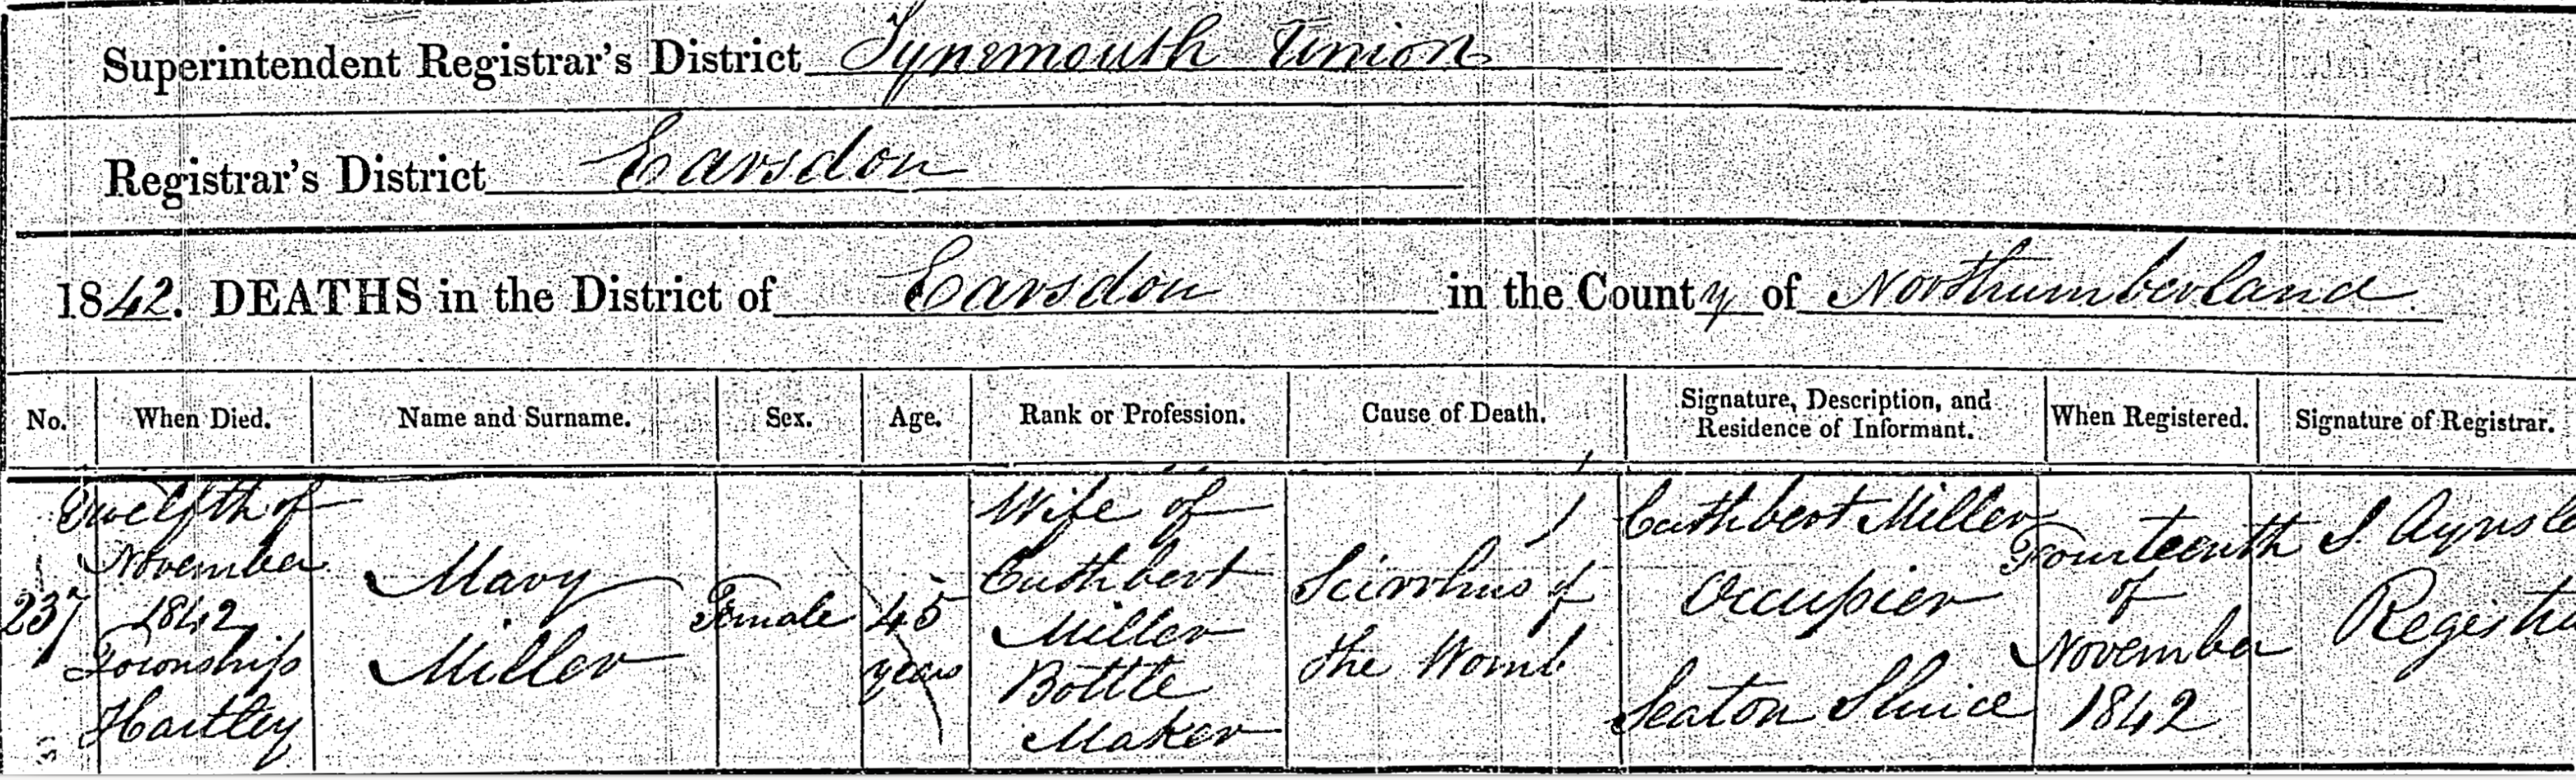 Superintendent Registrar's District Tynemouth Union
Registrar's District Earsdon
1842. DEATHS in the District of Earsdon in the County of Northumberland
No. When Died. Name and Surname. Sex. Age. Rank or Profession. Cause of Death. Signature, Description, and Residence of Informant. When Registered. Signature of Registrar.
237
Twelfth of
November
1842
Township
Hartley
Mary
Miller
Female
45
years
Wife of
Cuthbert
Miller
Bottle
Maker
Scirrhus of
the Womb
Cuthbert Miller
Occupier
Seaton Sluice
Fourteenth
of
November
1842
S. Aynsle
Registra